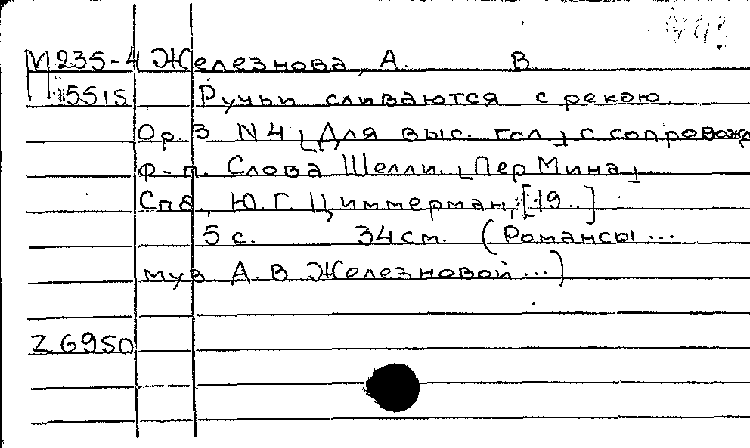 М235-4 Железнова, А. В
5515 Ручьи сливаются с рекою.
Ор. 3 N4 [Для выс. гол.] с сопровожд
ф-п. Слова Шелли. [Пер Мина]
Спб., Ю.Г. Циммерман, [19..]
5 с. 34 см. (Романсы ...
муз А. В Железновой ...)
Z 6950